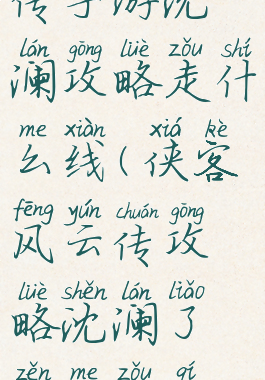 传手游沈
lán gōng lüè zǒu shí
澜攻略走什
me xiàn xiá kè
么线(侠客
fēng yún chuán gōng
风云传攻
lüè shěn lán liǎo
略沈澜了
zěn me zǒu qí